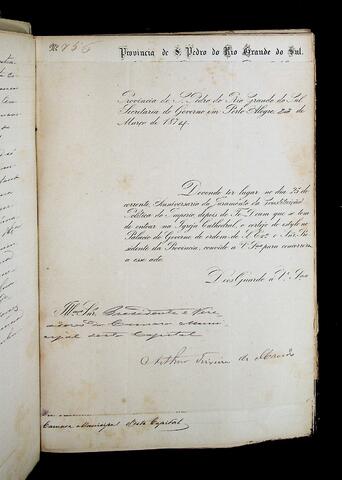 Nº 756
Provincia de S. Pedro do Rio Grande do Sul.
Provincia de S. Pedro do Rio Grande do Sul
Secretaria do Governo em Porto Alegre,
de Março de 1874.
Devendo ter lugar no dia 25 do
corrente, Anniversario do Juramento da Constituição
Politica do Imperio, depois do Te-Deum que se tem
de entoar na Igreja Cathedral, o cortejo do estylo no
Palacio do Governo de ordem de S. Exª o Snr. Pre
sidente da Provincia, convido a Vª Sas para concorrerem
a esse acto.
Deos Guarde a Vª Sas
Illmos Snrs Presidente e Vere
adores da Camara Muni
cipal desta Capital
Arthur Teixeira de Macedo
Camara Municipal desta Capital